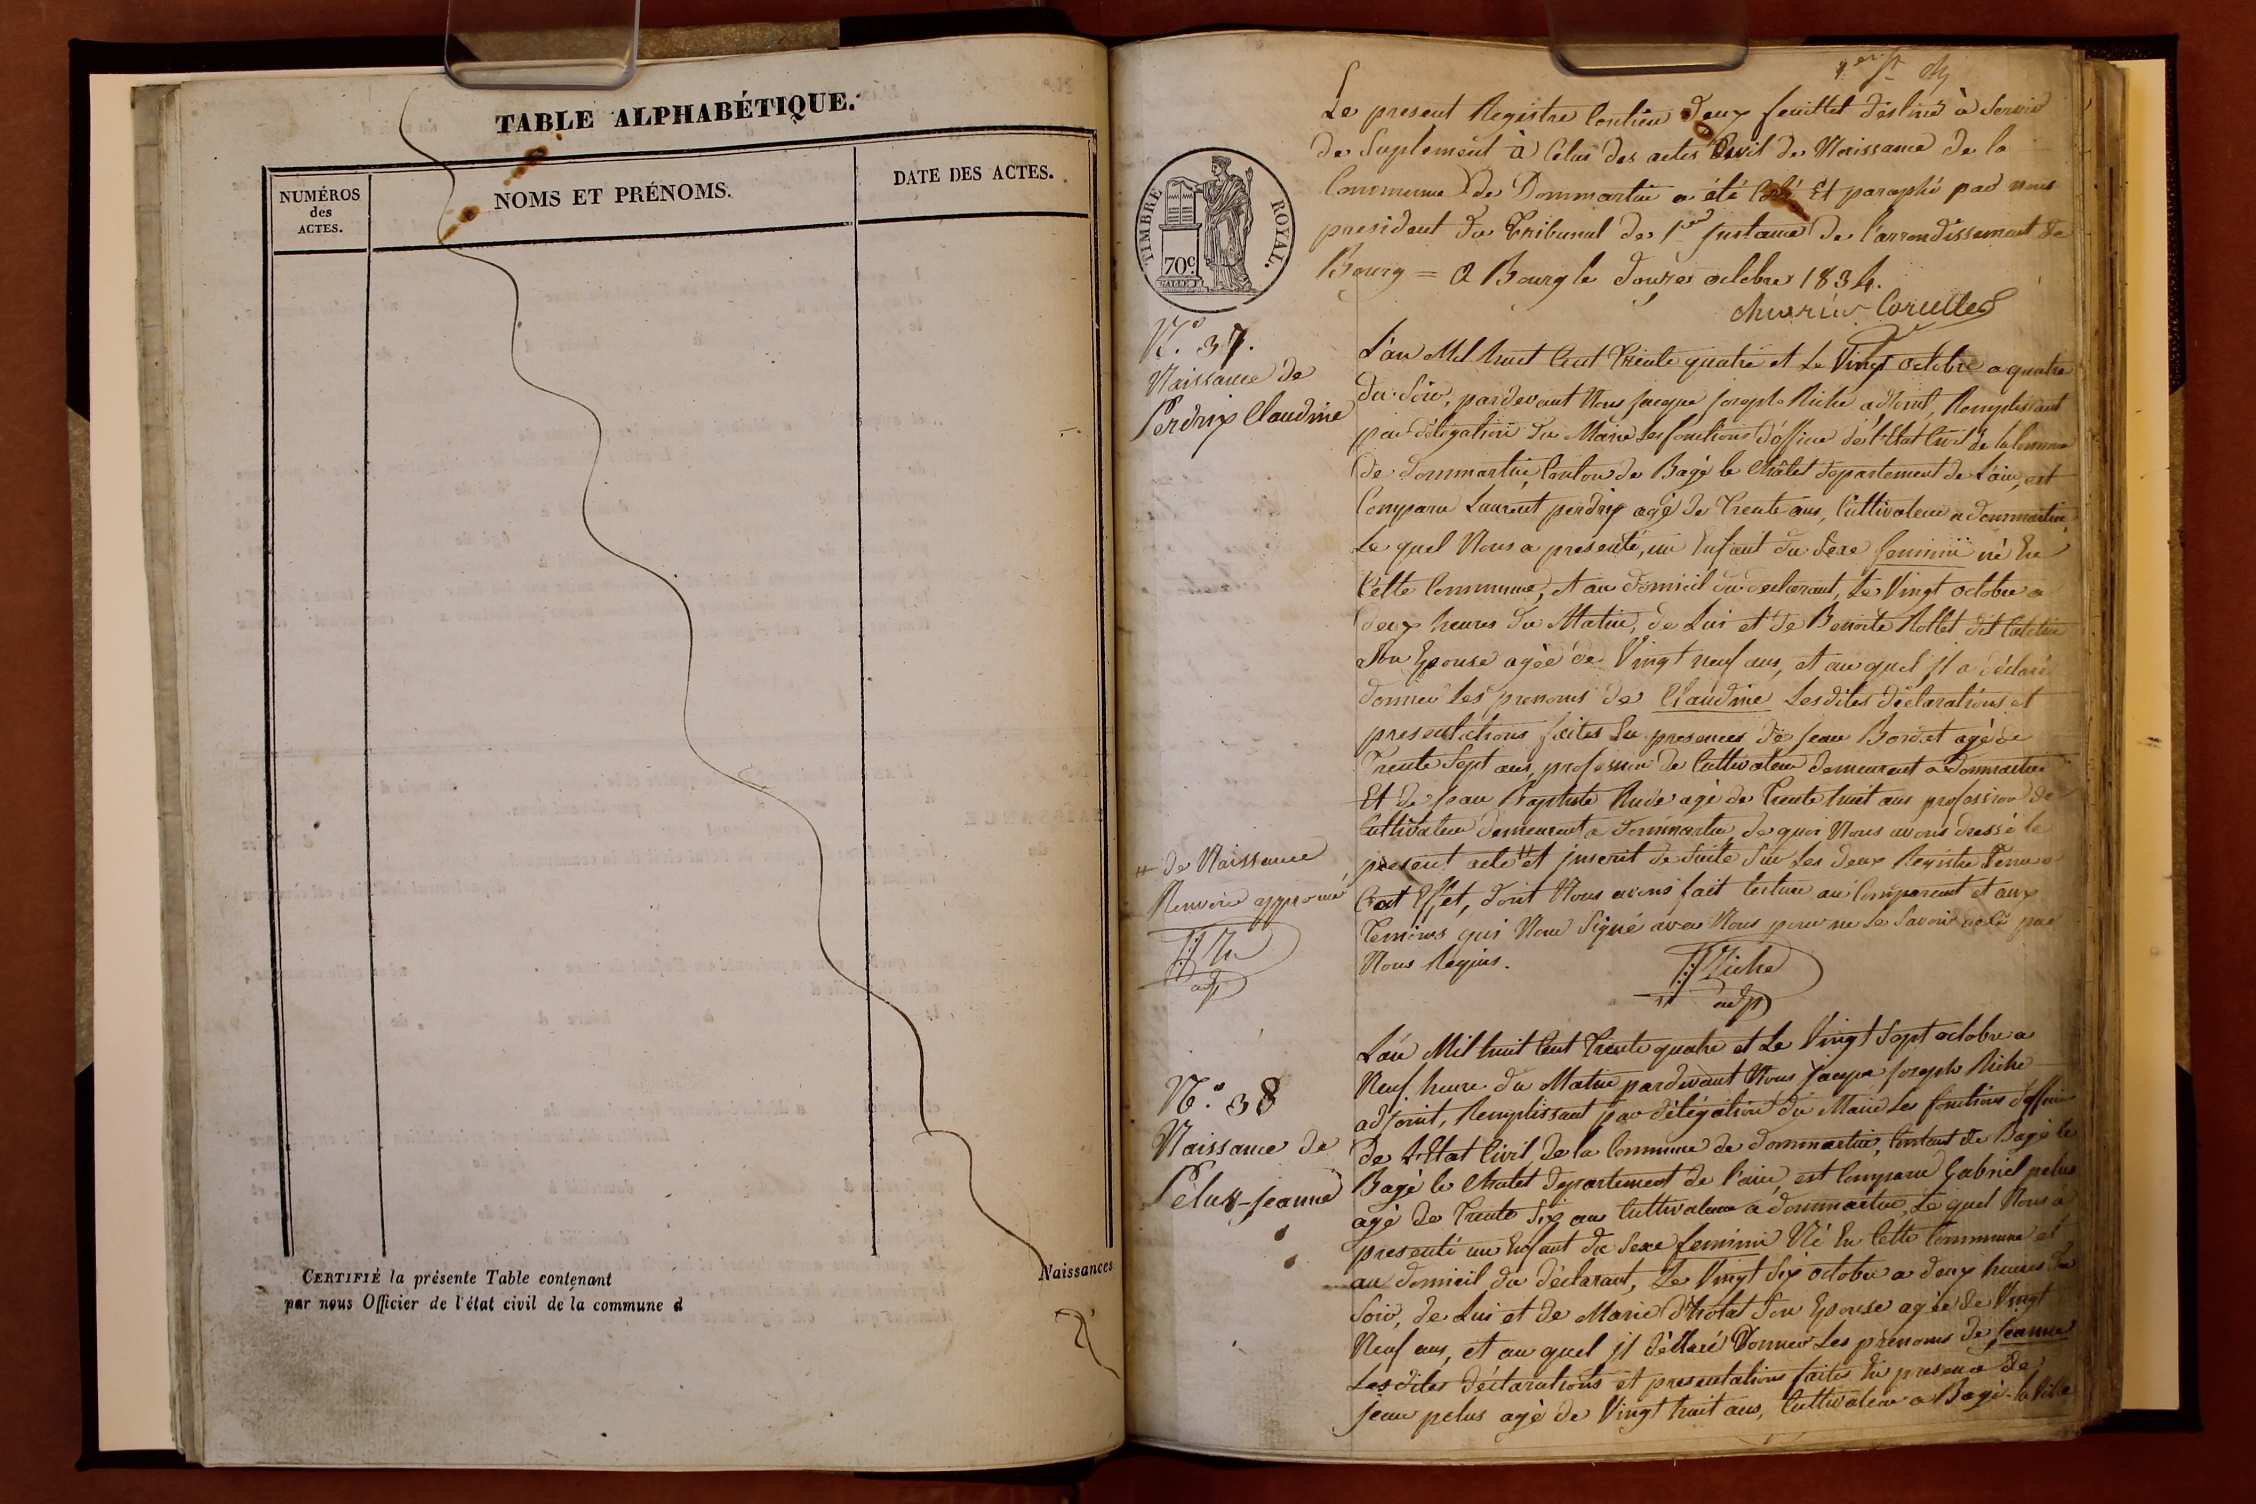 TABLE ALPHABÉTIQUE.
NUMÉROS
des
ACTES.
NOMS ET PRÉNOMS.
DATE DES ACTES.
CERTIFIÉ la présente Table contenant
Naissances
par nous Officier de l'état civil de la commune d
Le present Registre Contien deux feuillet destiné à Servir
de Suplement à Celui des actes Civil de Naissance de la
Commune de Dommartin a été Coté Et paraphé par nous
president du Tribunal de 1er Instance de l'arrondissement de
Bourg = A Bourg le douze octobre 1834.
TIMBRE ROYAL.
70c
N.° 37.
Naissance de
Perdrix Claudine
L'an Mil huit Cent Trente quatre et Le Vingt octobre a quatre
du Soir, pardevant Nous Jacque Joseph Riche adjoint, Remplissant
par délégation du Maire Les fonctions d'officier de l'Etat Civil de la Commune
de Dommartin, Canton de Bagé le Châtel département de L'ain, est
Comparu Laurent perdrix agé de Trente ans, Cultivateur a dommartin,
Le quel Nous a presenté, un Enfant du Sexe feminin né En
Cette Commune, et au domicil du declarant, Le Vingt octobre a
deux heures du Matin, de Lui et de Benoite Rollet dit
Son Epouse agée de Vingt neuf ans, et au quel il a déclaré
donner Les prenoms de Claudine Lesdites déclarations et
presentations faites En presences de Jean Bordet agé de
Trente Sept ans, profession de Cultivateur demeurant a Dommartin
Et de Jean Baptiste Rude agé de Trente huit ans profession de
Cultivateur demeurant a dommartin, de quoi Nous avons dressé le
present acte # et inscrit de Suite Sur Les deux Registre Tenu a
Cest Effet, dont Nous avons fait lecture au Comparant et aux
Temoins qui Nont Signé avec Nous pour ne Le Savoir de ce par
Nous Requis.
# de Naissance
Renvoie approuvé
JJ Riche
adj
N.° 38
Naissance de
Pelus-jeanne
L'an Mil huit Cent Trente quatre et Le Vingt Sept octobre a
Neuf heure du Matin pardevant Nous Jacque Joseph Riche
adjoint, Remplissant par délégation du Maire Les fonctions d'officier
De L'Etat Civil, de la Commune de dommartin, Canton de Bagé le
Bagé le Chatel departement de l'ain, est Comparu Gabriel pelus
agé de Trente Six ans Cultivateur a dommartin, Le quel Nous a
presenté un Enfant du Sexe feminin Né En Cette Commune et
au domicil du déclarant, Le Vingt Six octobre a deux heures du
Soir, de Lui et de Marie Son Epouse agée de Vingt
Neuf ans, et au quel il déclaré Donner Les prénoms de Jeanne
Lesdites déclarations et presentations faites En presence de
Jean pelus agé de Vingt huit ans, Cultivateur a Bagé-la Ville